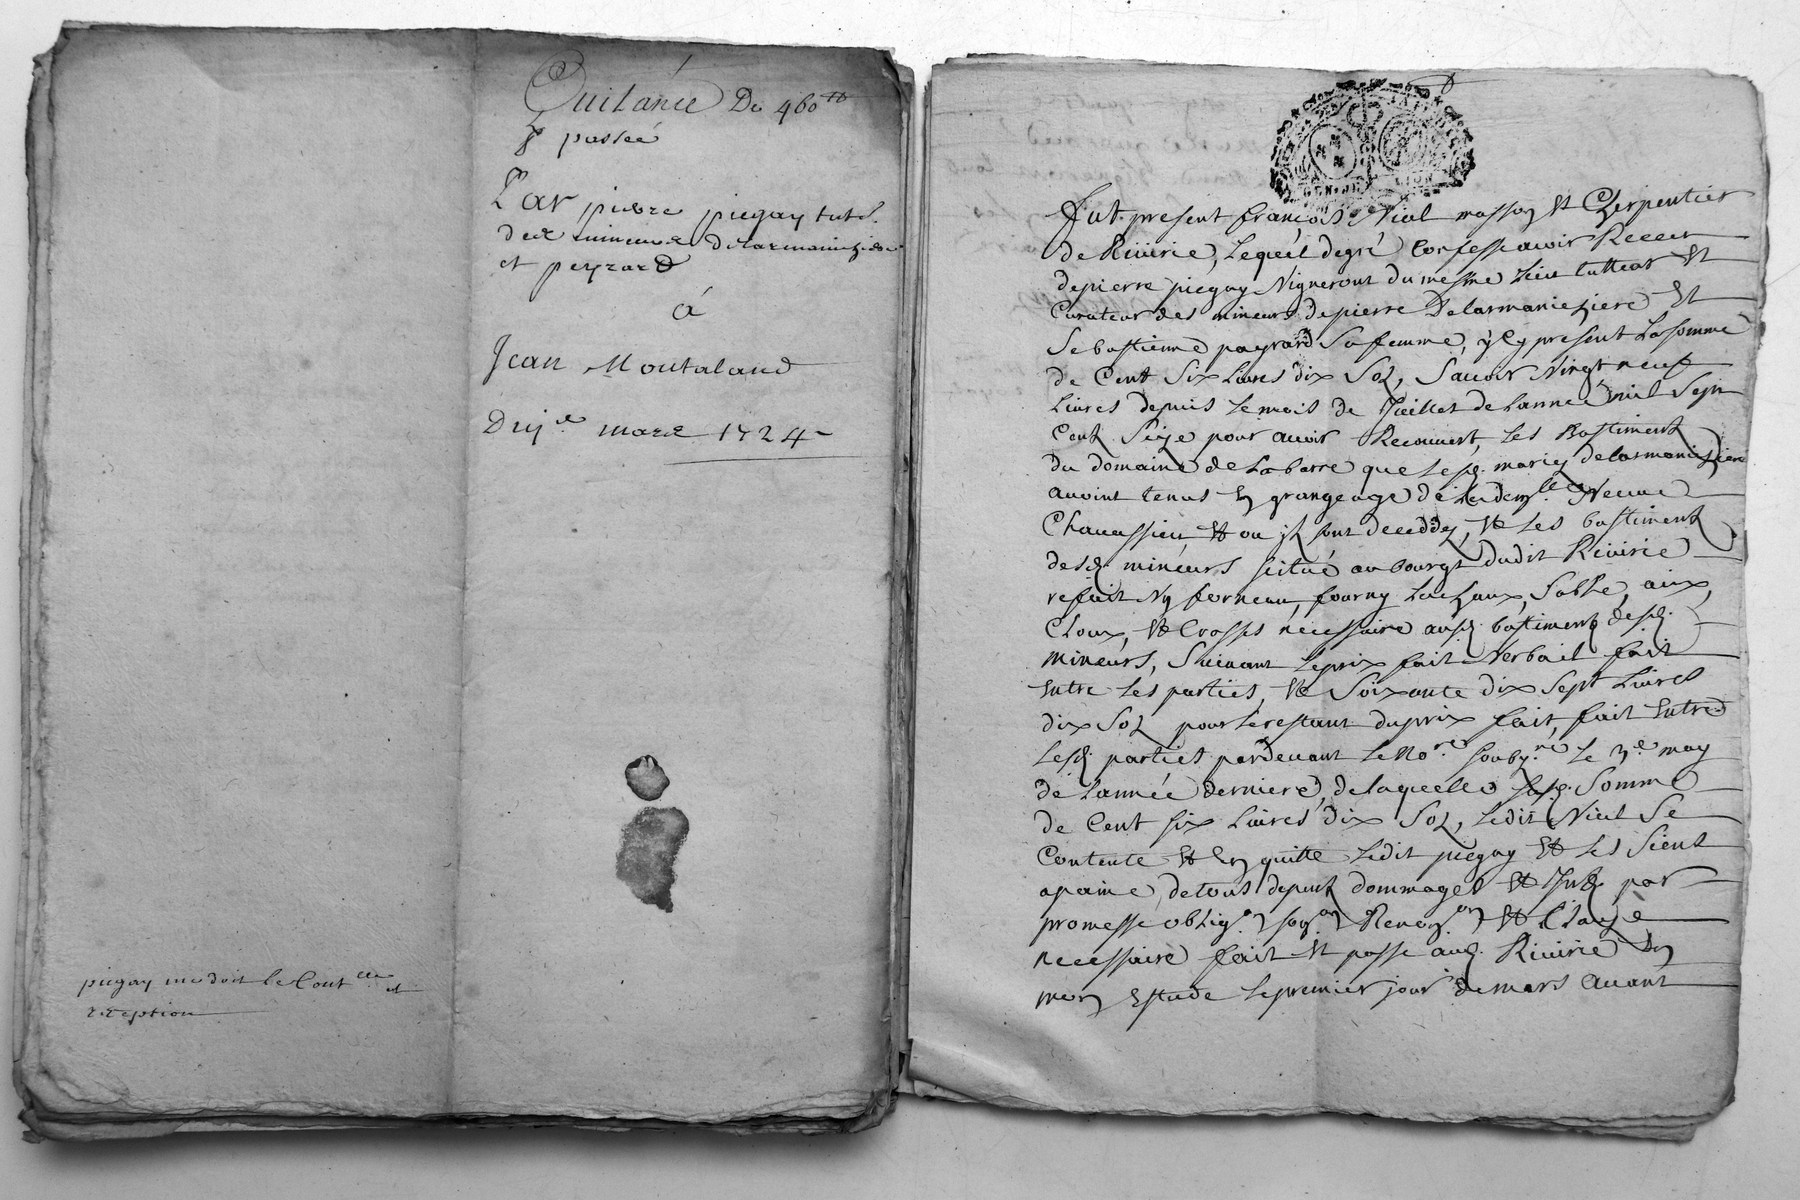 Quitance De 460 tt
passée
Par pierre piegay tut.r
des mineurs delarmaniziere
et peyrard
á
Jean Montaland
Du j.er mars 1724
piegay me doit le Cont.lle et
exeption
Fut present françois Nial masson Et Cherpentier
de Riuirie, Lequel degré Confesse auoir Receu
depierre piegay Vigneront du mesme Lieu tutteur Et
Curateur des mineurs depierre Delarmanieziere Et
Sebastienne payrard Sa femme, y Cy present La somme
de Cent Six Liures dix Sol, Sauoir Vingt neuf
Liures depuis Le mois de Juillet de Lannée mil Sept
Cent Seize pour auoir Recouuert, Les Bastiments
du domaine de Labarre que Lesd. mariez delarmanieziere
auoint tenus En grangeage de La dem.lle Veuue
Chauassieu Et ou ils sont deceddez, Et Les bastiments
desd. mineurs scitué au bourgt dudit Riuirie
refait Un forneau, fourny La Chaux, Sable, aix,
Cloux, Et Crosses necessaire ausd. bastiments desd.
mineurs, Suiuant Leprix fait Verbail fait
Entre Les parties, Et Soixante dix Sept Liures
dix Sol pour Le restant du prix fait, fait Entre
Lesd. parties pardeuant Le No.re soubz.né Le 3.e may
de Lannée derniere, de laquelle Somme
de Cent Six Liures dix Sol, Ledit Nial Se
Contente Et En quitte Ledit piegay Et Les Siens
apeine de tous depens dommages Et Int. par
promesse oblig.on soum.on Renon.on Et Clause
necessaire fait Et passé aud. Riuirie En
mon Estude Le premier jour de mars auant